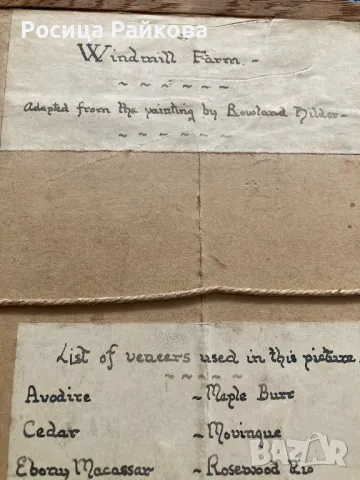 Росица Райкова
Windmill Farm. -
~ ~ ~ ~ ~ ~
Adapted from the painting by Rowland Hilder-
~ ~ ~ ~ ~ ~
List of veneers used in this picture.
~ ~ ~ ~ ~
Avodire ~ Maple Burr
Cedar ~ Movingue
Ebony Macassar ~ Rosewood Rio
BAZAR